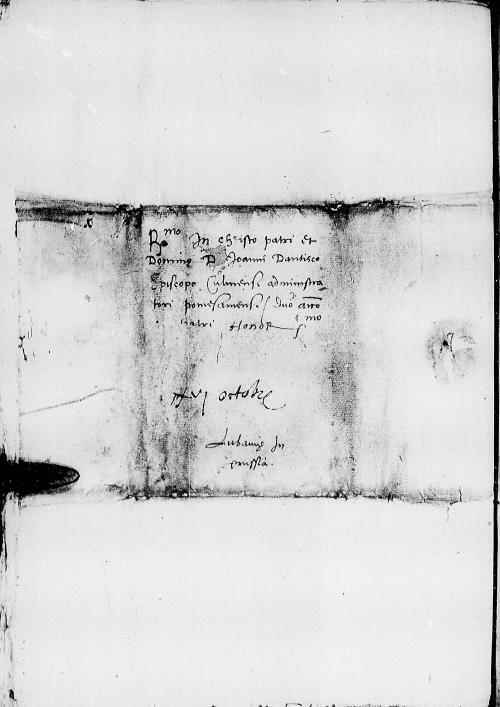 R^mo In christo patri et
Domino D Joanni Dantisco
Episcopo Culmensi administra
tori pomesaniensi
patri Honor
xvj octobr
Lubaviæ In
prussia.